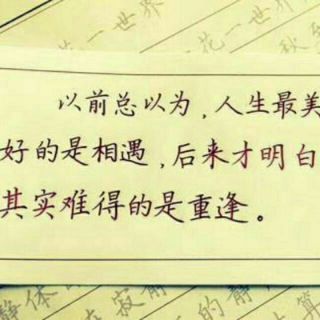 花一世界
以前总以为,人生最美
好的是相遇,后来才明白
其实难得的是重逢。